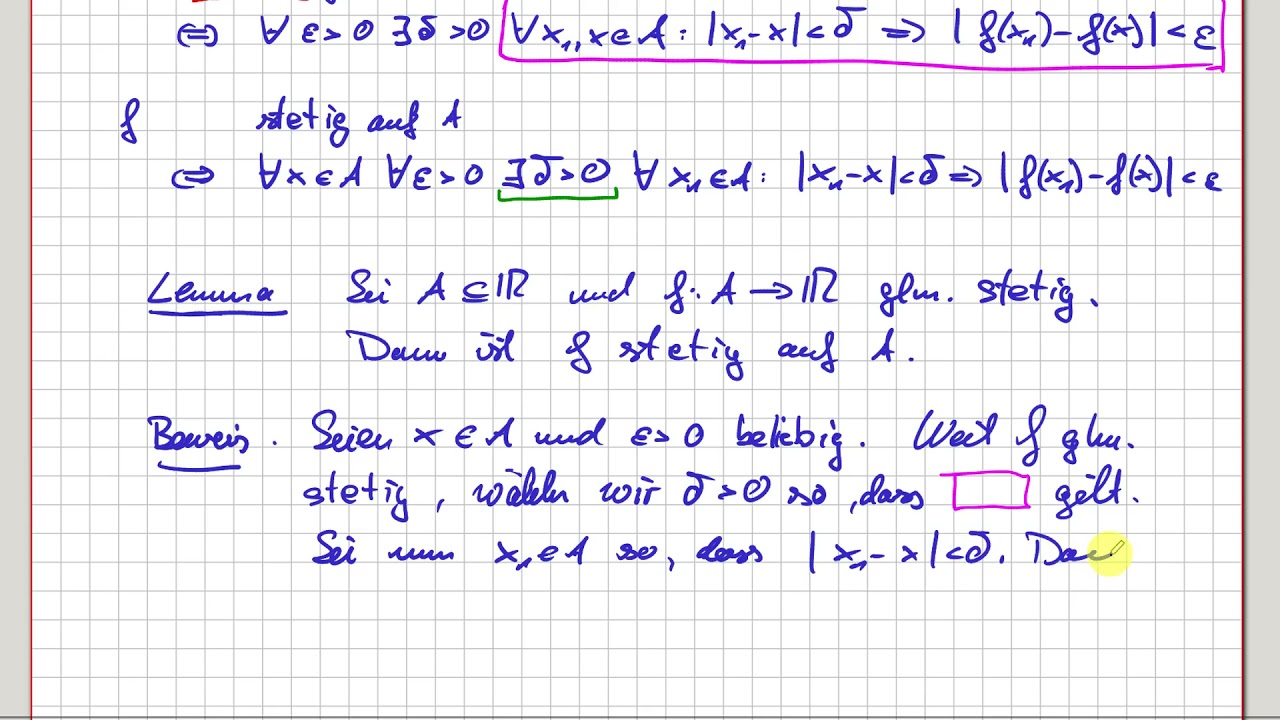 ⇔ ∀ε>0 ∃δ>0 ∀x₁,x∈A: |x₁-x|<δ ⇒ |f(x₁)-f(x)|<ε
f stetig auf A
⇔ ∀x∈A ∀ε>0 ∃δ>0 ∀x₁∈A: |x₁-x|<δ ⇒ |f(x₁)-f(x)|<ε
Lemma Sei A⊆ℝ und f: A→ℝ glm. stetig.
Dann ist f stetig auf A.
Beweis. Seien x∈A und ε>0 beliebig. Weil f glm.
stetig, wählen wir δ>0 so, dass gilt.
Sei nun x₁∈A so, dass |x₁-x|<δ. Dan